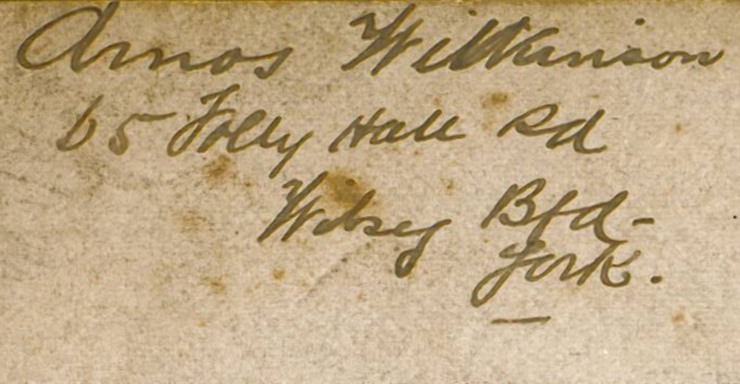 Amos Wilkinson
65 Folly Hall Rd
Wibsey Bfd-
York.